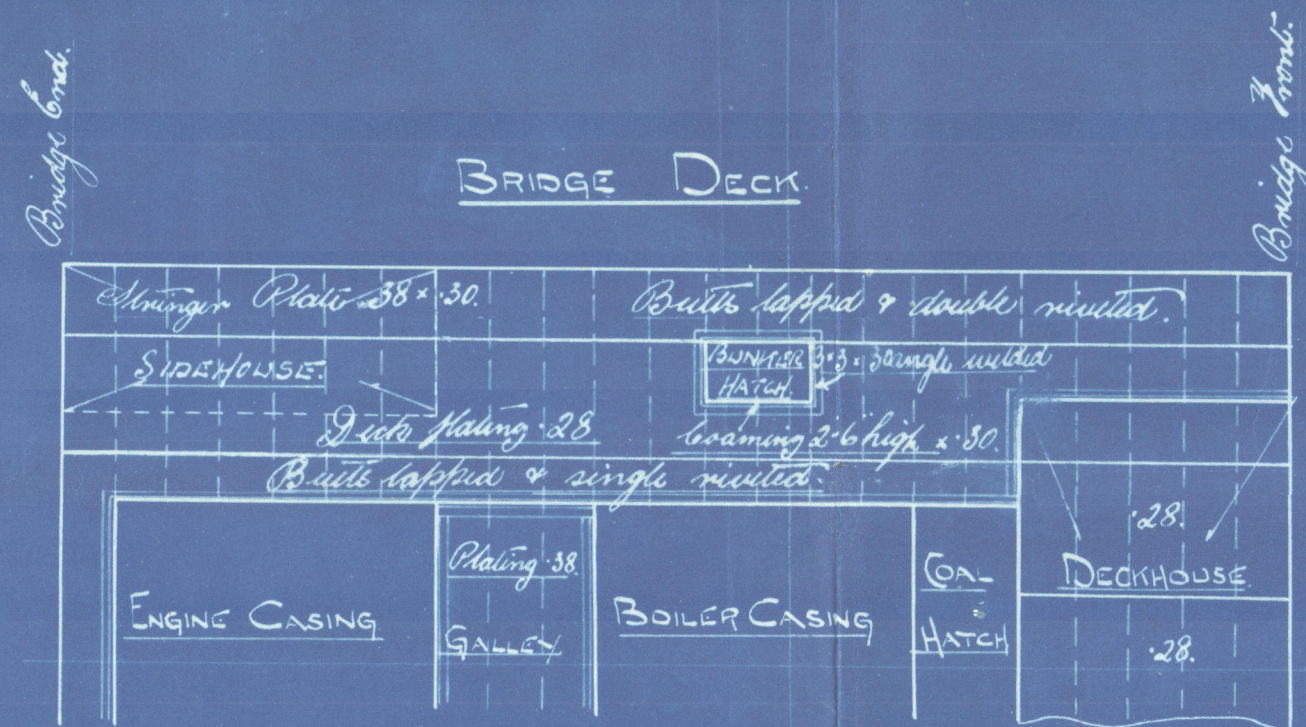 Bridge End.
Bridge Front.
BRIDGE DECK.
Stringer Plate 38 × .30.
Butts lapped & double riveted.
SIDEHOUSE.
BUNKER
HATCH.
3 × 3 × .30 angle welded
Deck plating .28
Coaming 2-6 high × .30.
Butts lapped & single riveted.
ENGINE CASING
Plating .38.
GALLEY
BOILER CASING
COAL
HATCH
.28.
DECKHOUSE
.28.